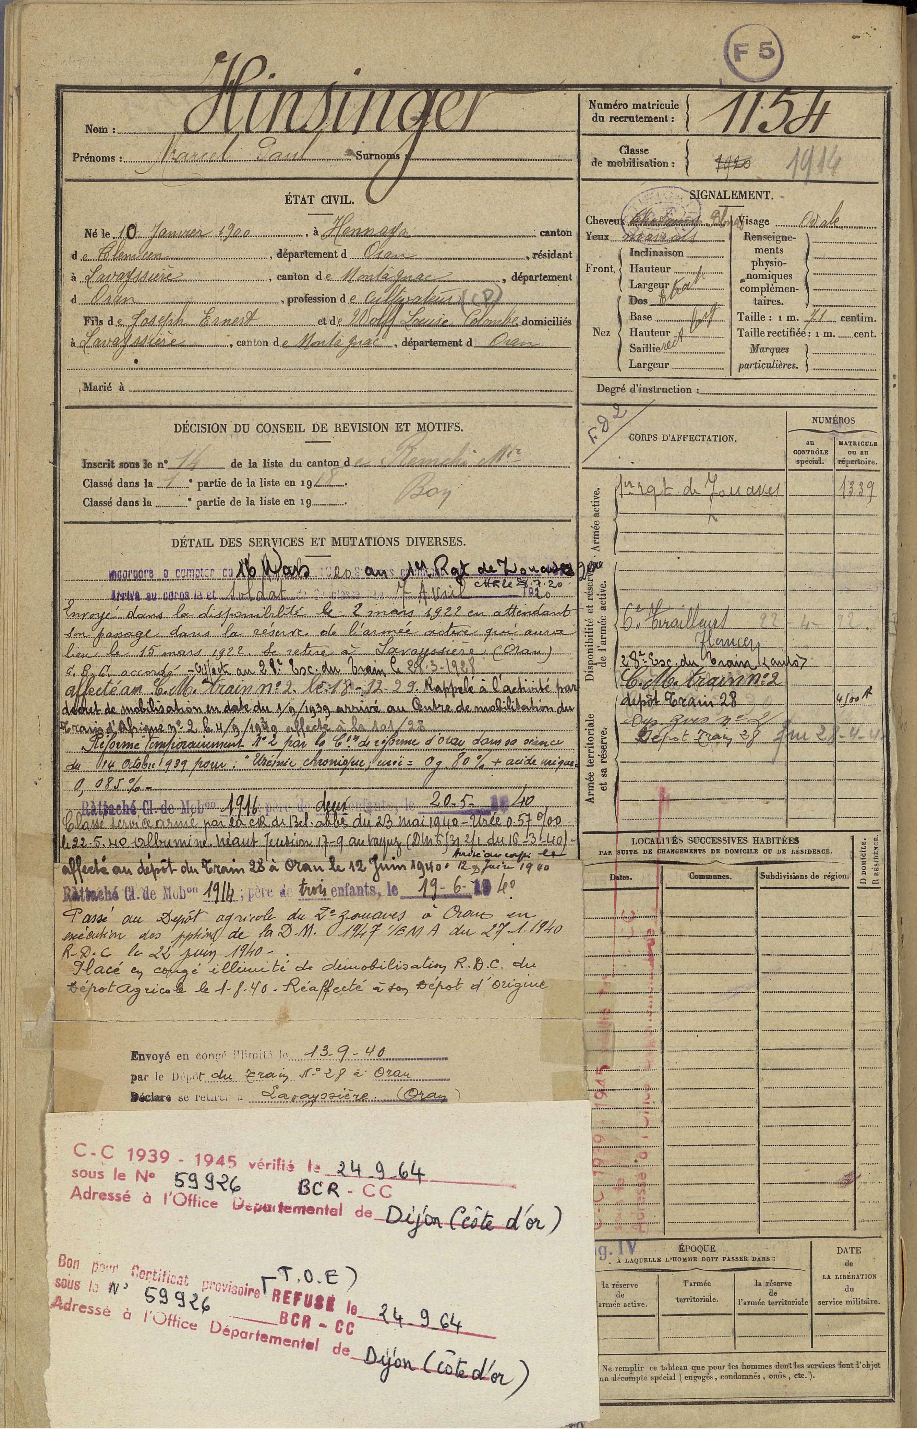 F 5
Hinsinger
Nom :
Prénoms : Marcel Paul Surnoms :
Numéro matricule
du recrutement : 1154
Classe
de mobilisation : 1920 1914
ÉTAT CIVIL.
Né le 10 Janvier 1900, à Hennaya canton
de Tlemcen, département d Oran, résidant
à Lavayssière, canton de Montagnac, département
d Oran, profession de Cultivateur (CP)
Fils de Joseph Ernest et de Wolff Louise Colombe, domiciliés
à Lavayssière, canton de Montagnac, département d Oran
Marié à
SIGNALEMENT.
Cheveux Visage Ovale
Yeux marrons
Front
Inclinaison
Hauteur
Largeur
Dos
Nez
Base
Hauteur
Saillie
Largeur
Renseigne-
ments
physio-
nomiques
complémen-
taires.
Taille : 1 m. 71 centim.
Taille rectifiée : 1 m. cent.
Marques
particulières.
Degré d'instruction :
DÉCISION DU CONSEIL DE REVISION ET MOTIFS.
Inscrit sous le n° 14 de la liste du canton de Remchi Mte
Classé dans la 1 e partie de la liste en 1918. Bon
Classé dans la e partie de la liste en 19
DÉTAIL DES SERVICES ET MUTATIONS DIVERSES.
Incorporé à compter du 16 Mars 1920 au 1er Rgt de Zouaves
Arrivé au corps le et soldat de 7 Avril 1920
Envoyé dans la disponibilité le 2 mars 1922 en attendant
son passage dans la réserve de l'armée active qui aura
lieu le 15 mars 1922 se retire à Lavayssière (Oran)
C. B. C. accordé - Affect au 28e Esc. du Train le 28-3-1928
affecté au C.M. train n°2 le 18-12-29. Rappelé à l'activité par
décret de mobilisation en date du 1/9/1939 arrivé au Centre de mobilisation du
Train d'Afrique n° 2 le 4/9/1939 affecté à la 101/28
Réformé Temporairement N°2 par la Con de réforme d'Oran dans sa séance
du 14 octobre 1939 pour : "Urémie chronique, urée = 0g 80 % + acide urique
0g 085 % -
Rattaché Cl. de Mobon 1916, père de deux enfants, le 20-5-1940
Classé service armé par la CR de Bel abbès du 23 mai 1940 - Urée 0.57 %00
le 22.5.40 albumine néant Tension 17-9 au vaquez (DM 5131 2/1 du 16-3-40) -
Arrivé au corps le 12 Juin 1940
affecté au dépôt du Train 28 à Oran le 12 Juin 1940.
Rattaché Cl. de Mobon 1914, père de trois enfants, le 19-6-1940
Passé au Dépôt agricole du 2e zouaves à Oran en
exécution des pptions de la D.M. 1947 /EMA du 27.1.1940
R.D.C le 22 juin 1940 -
Placé en congé illimité de démobilisation R.D.C. du
Dépôt Agricole le 1.8.40 - Réaffecté à son Dépôt d'Origine
Envoyé en congé illimité le 13-9-40
par le Dépôt du Train N° 28 à Oran
Déclare se retirer à Lavayssière (Oran)
C-C 1939 - 1945 vérifié le 24.9.64
sous le N° 59926 BCR - CC
Adressé à l'Office Départemental de Dijon (côte d'or)
Bon pour Certificat provisoire (T.O.E)
REFUSÉ le 24.9.64
sous le N° 59926 BCR - CC
Adressé à l'Office Départemental de Dijon (côte d'or)
CORPS D'AFFECTATION.
NUMÉROS
au
CONTRÔLE
spécial.
MATRICULE
ou au
répertoire.
Armée active.
1er rgt de Zouaves 1339
Disponibilité et réserve
de l'armée active.
6e Tirailleurs
Tlemcen
28e Esc. du Train
C.M. train n°2
dépôt Train 28
Armée territoriale
et sa réserve.
Dépôt Train 28
LOCALITÉS SUCCESSIVES HABITÉES
PAR SUITE DE CHANGEMENTS DE DOMICILE OU DE RÉSIDENCE.
Dates.
Communes.
Subdivisions de région.
D domicile.
R résidence.
g. IV
ÉPOQUE
A LAQUELLE L'HOMME DOIT PASSER DANS :
la réserve
de
l'armée active.
l'armée
territoriale.
la réserve
de
l'armée territoriale
DATE
de
LA LIBÉRATION
du
service militaire.
Ne remplir ce tableau que pour les hommes dont les services font l'objet
d'un décompte spécial (engagés, condamnés, omis, etc.).